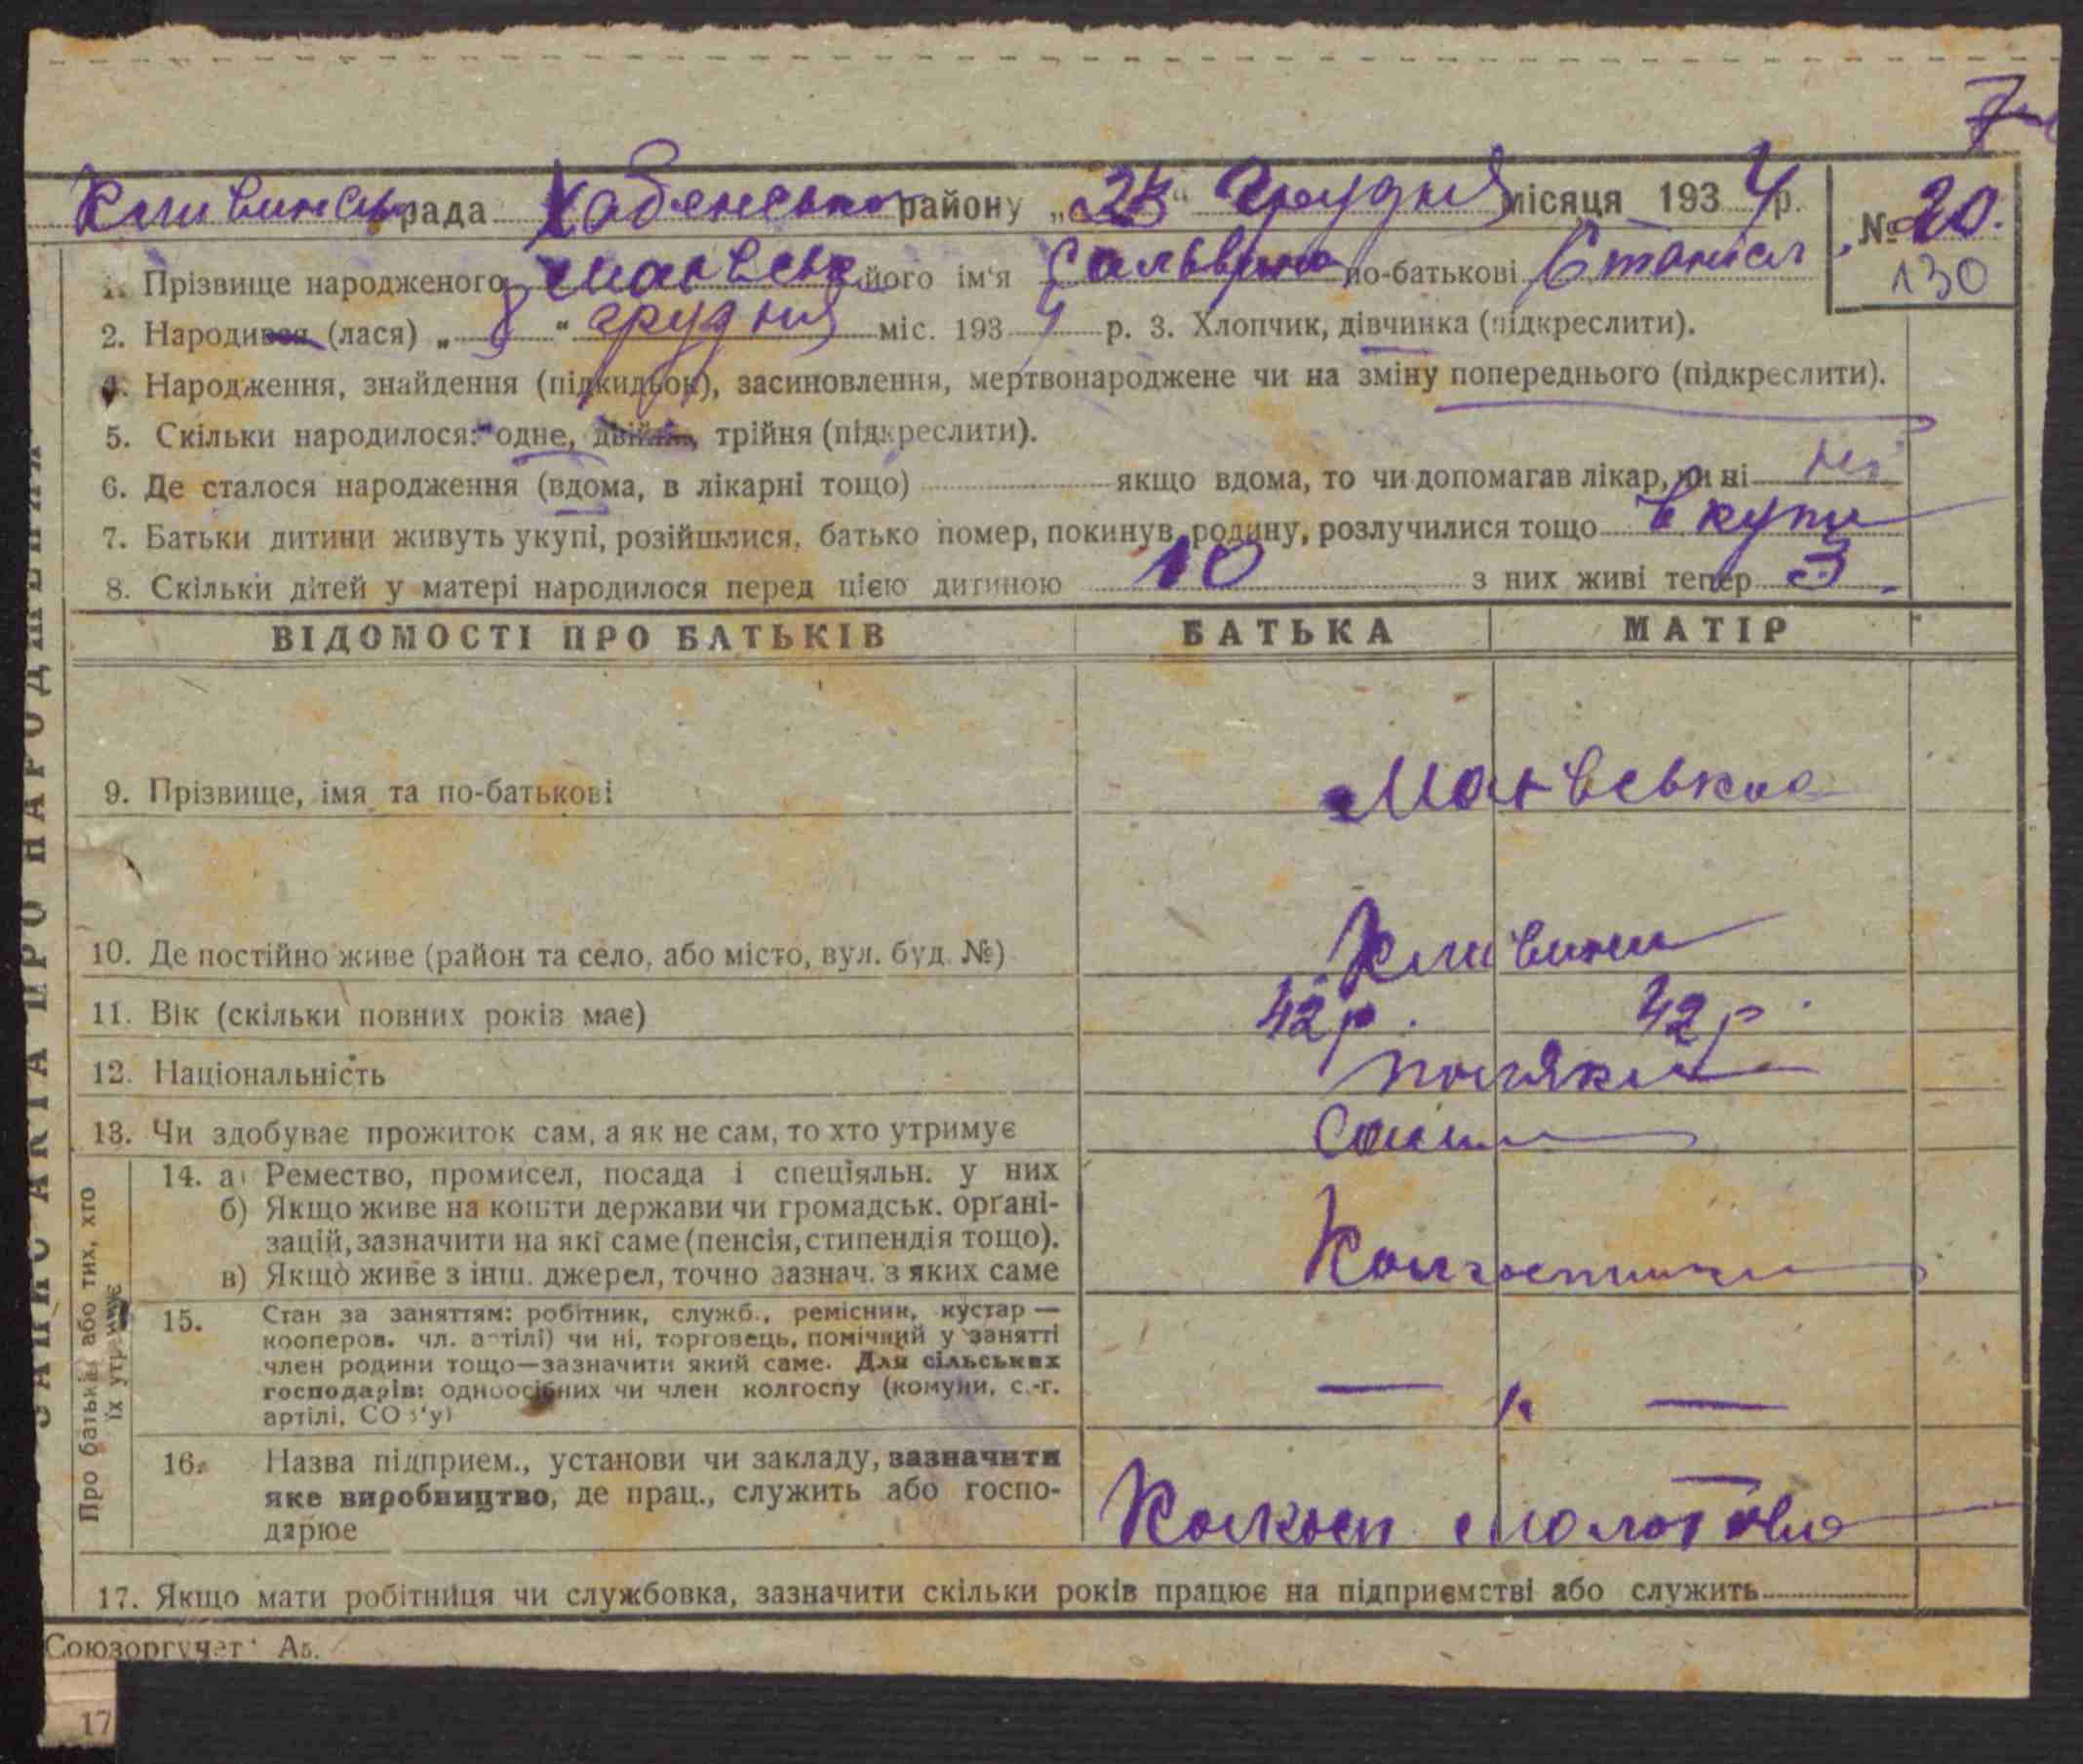 Кливинсь рада Хабенсько району „25“ Грудня місяця 1934 р. № 20.
130
1. Прізвище народженого його ім'я по-батькові Станісл
2. Народився (лася) „ “ грудня міс. 1934 р. 3. Хлопчик, дівчинка (підкреслити).
4. Народження, знайдення (підкидьок), засиновлення, мертвонароджене чи на зміну попереднього (підкреслити).
5. Скільки народилося: одне, двійня, трійня (підкреслити).
6. Де сталося народження (вдома, в лікарні тощо) якщо вдома, то чи допомагав лікар, чи ні ні
7. Батьки дитини живуть укупі, розійшлися, батько помер, покинув родину, розлучилися тощо вкупи
8. Скільки дітей у матері народилося перед цією дитиною 10 з них живі тепер 3
ВІДОМОСТІ ПРО БАТЬКІВ БАТЬКА МАТІР
9. Прізвище, імя та по-батькові
10. Де постійно живе (район та село, або місто, вул. буд. №) Кливини
11. Вік (скільки повних років має) 42 р. 42 р.
12. Національність поляки
13. Чи здобуває прожиток сам, а як не сам, то хто утримує Сами
Про батьків або тих, хто їх утримує
14. а) Ремество, промисел, посада і спеціяльн. у них
б) Якщо живе на кошти держави чи громадськ. органі-
зацій, зазначити на які саме (пенсія, стипендія тощо).
в) Якщо живе з інш. джерел, точно зазнач. з яких саме Колгоспники
15. Стан за заняттям: робітник, служб., ремісник, кустар —
кооперов. чл. артілі) чи ні, торговець, помічний у занятті
член родини тощо—зазначити який саме. Для сільських
господарів: одноосібних чи член колгоспу (комуни, с.-г.
артілі, СОЗ'у) — „ —
16. Назва підприєм., установи чи закладу, зазначити
яке виробництво, де прац., служить або госпо-
дарює Колхосп Молотова
17. Якщо мати робітниця чи службовка, зазначити скільки років працює на підприємстві або служить
ЗАПИС АКТА ПРО НАРОДЖЕННЯ
Союзоргучет
17